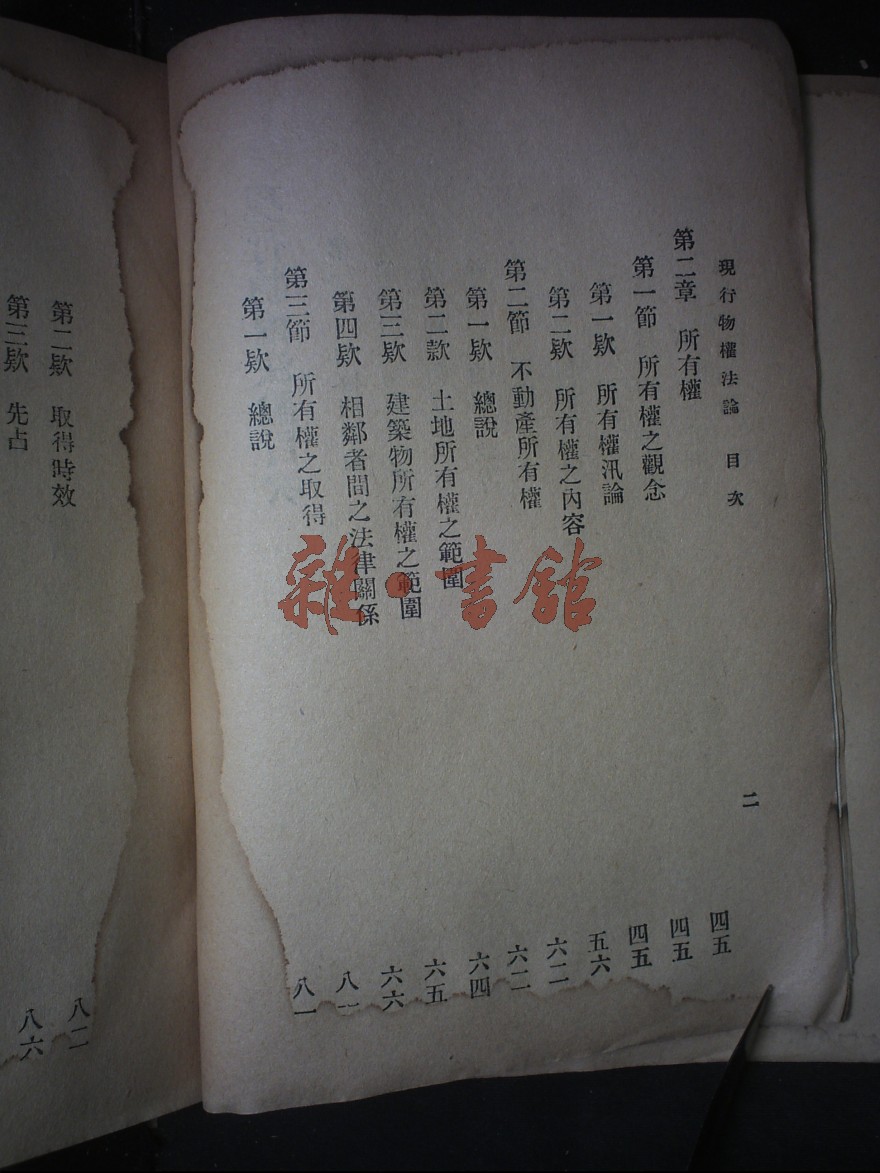 現行物權法論 目次 二
第二章 所有權 四五
第一節 所有權之觀念 四五
第一欵 所有權汎論 四五
第二欵 所有權之內容 五六
第二節 不動產所有權 六二
第一欵 總說 六二
第二款 土地所有權之範圍 六四
第三欵 建築物所有權之範圍 六五
第四欵 相鄰者間之法律關係 六六
第三節 所有權之取得 八一
第一欵 總說 八一
第二欵 取得時效 八二
第三欵 先占 八六
雜·書館